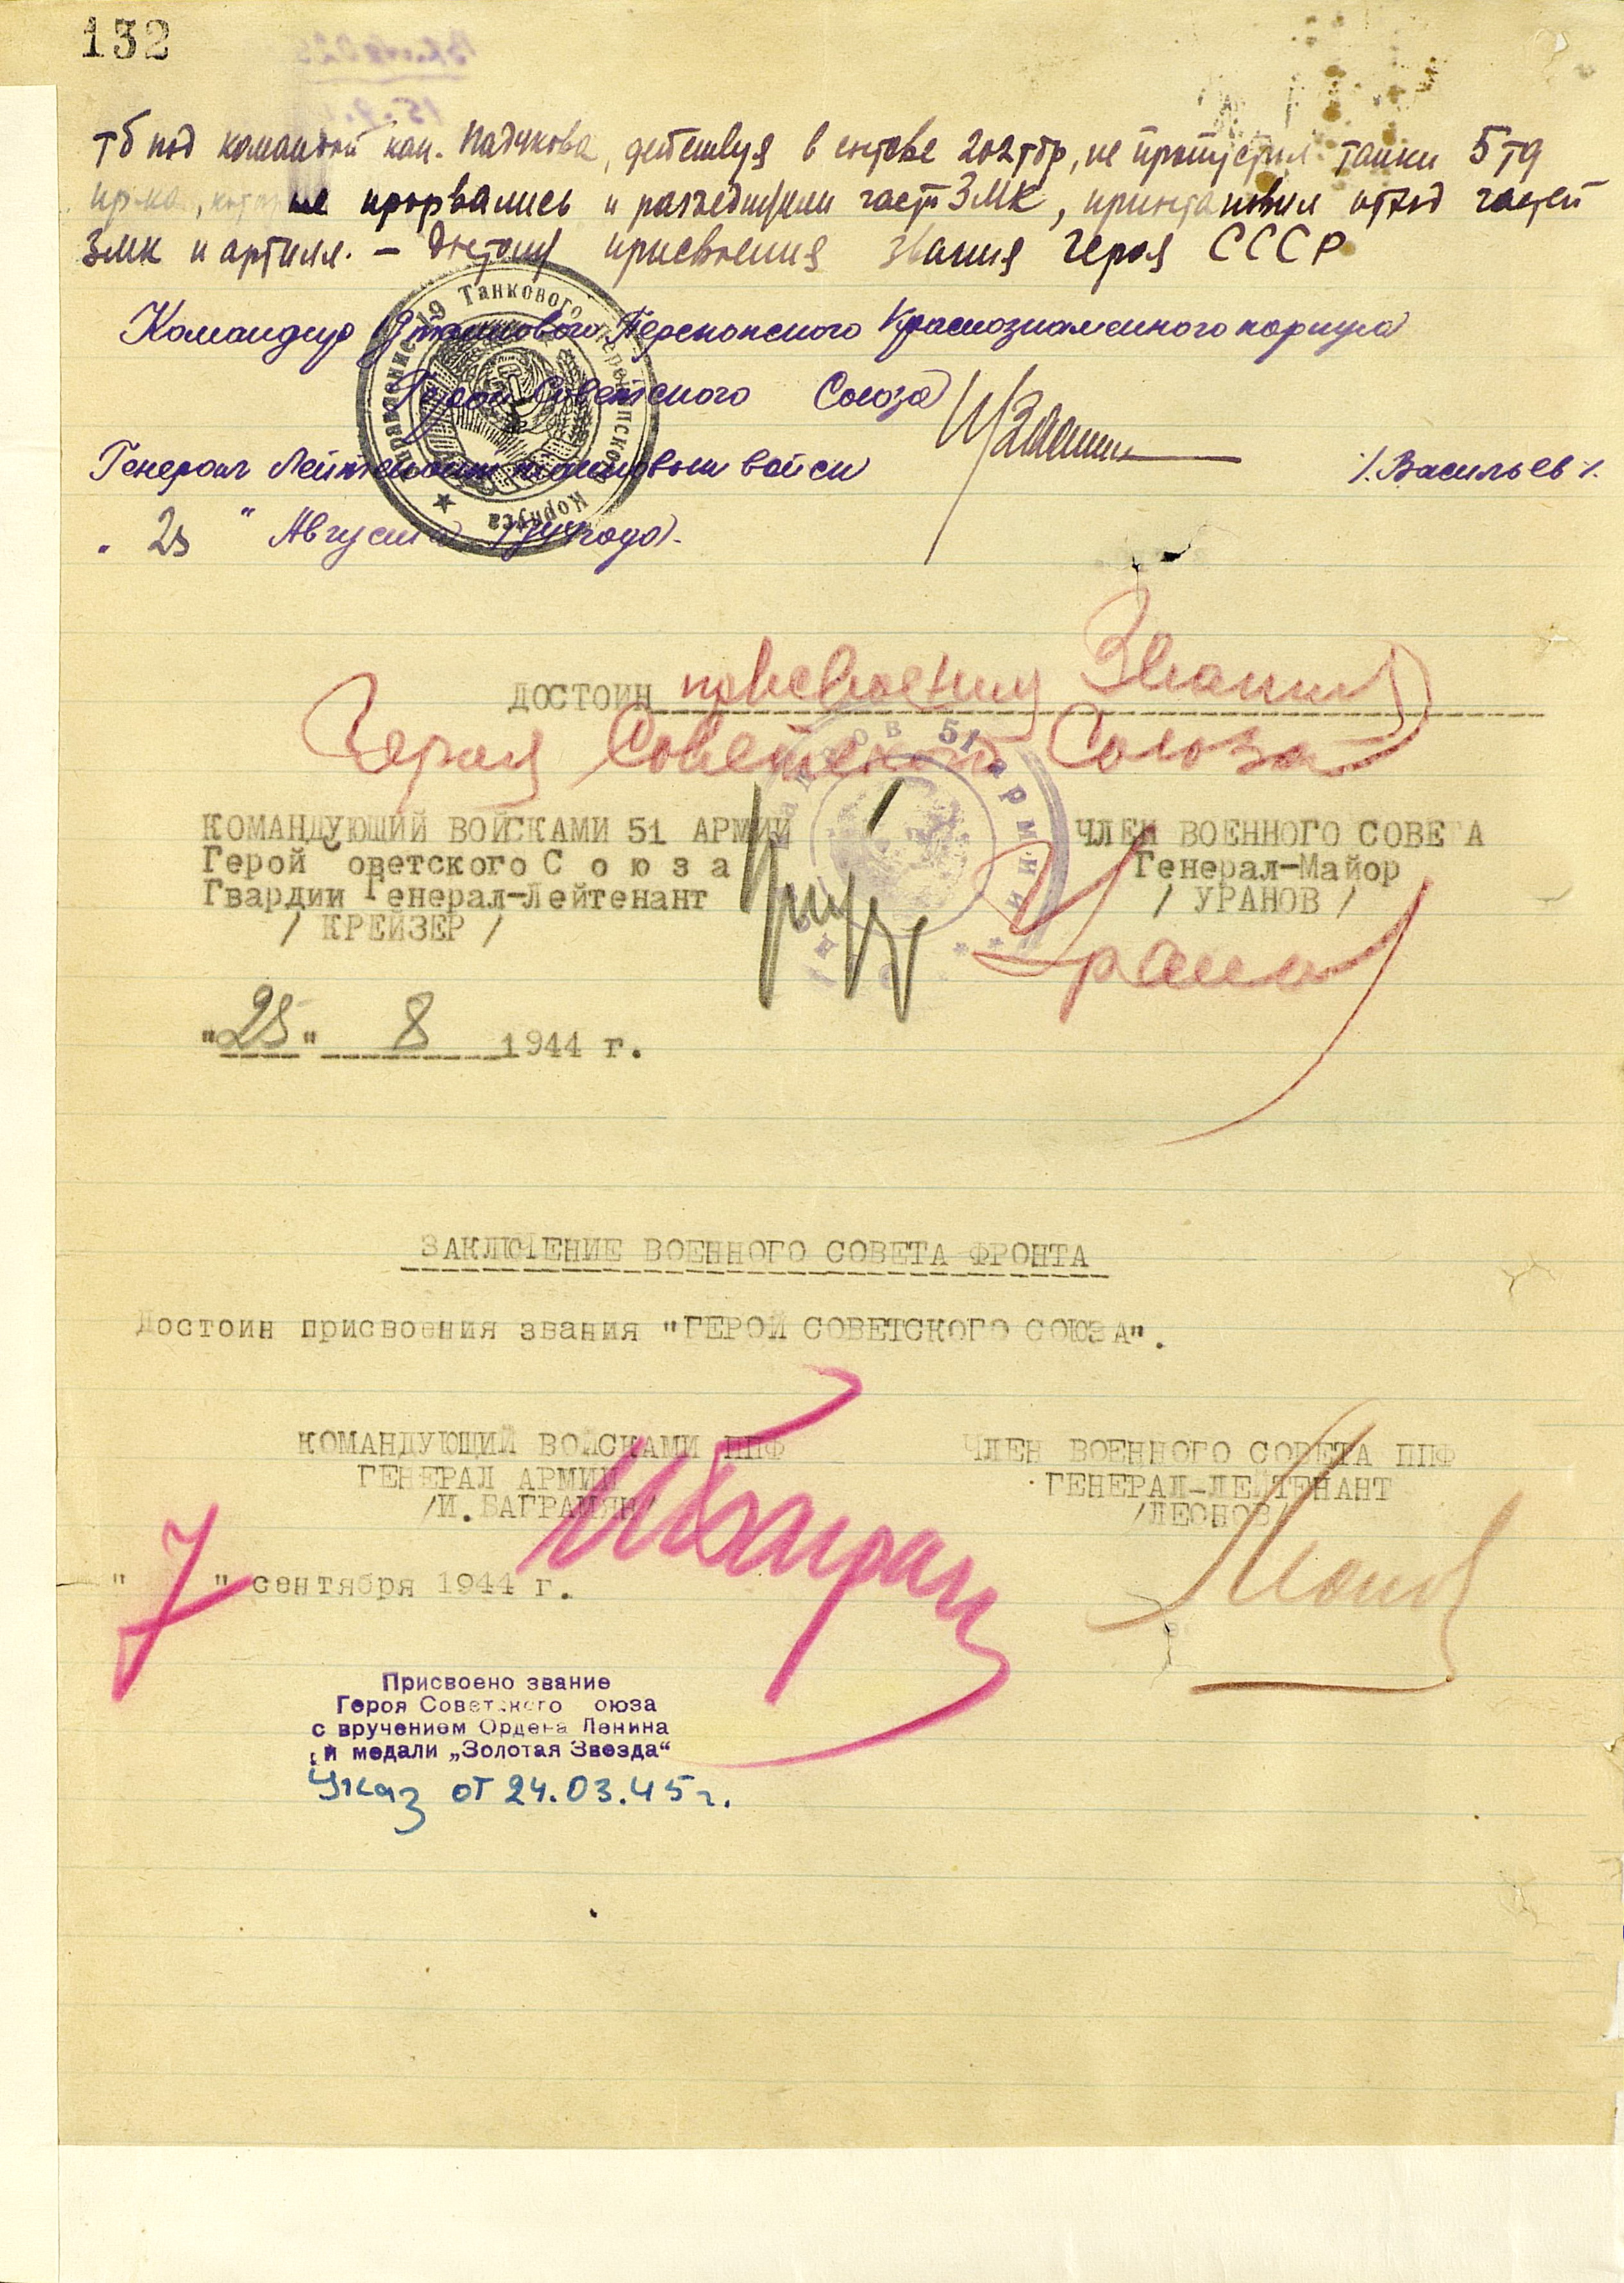 132
тб под командой кап. Падукова, действуя в составе 202тбр, не пропустил танки 5 тд
пр-ка, которые прорвались и разъединили части 3МК, приостановил отход частей
3МК и артилл. – Достоин присвоения звания Героя СССР
Командир 19 танкового Перекопского Краснознаменного корпуса
Герой Советского Союза
Генерал Лейтенант танковых войск /.Васильев/.
"25" Августа 1944 года.
Управление 19 Танкового Перекопского Корпуса
ДОСТОИН присвоения Звания
Героя Советского Союза
51 армии
КОМАНДУЮЩИЙ ВОЙСКАМИ 51 АРМИИ ЧЛЕН ВОЕННОГО СОВЕТА
Герой оветского С о ю з а Генерал-Майор
Гвардии Генерал-Лейтенант / УРАНОВ /
/ КРЕЙЗЕР /
"25" 8 1944 г.
ЗАКЛЮЧЕНИЕ ВОЕННОГО СОВЕТА ФРОНТА
Достоин присвоения звания "ГЕРОЙ СОВЕТСКОГО СОЮЗА".
КОМАНДУЮЩИЙ ВОЙСКАМИ ППФ ЧЛЕН ВОЕННОГО СОВЕТА ППФ
ГЕНЕРАЛ АРМИИ ГЕНЕРАЛ-ЛЕЙТЕНАНТ
/И. БАГРАМЯН/ /ЛЕОНОВ/
"7" сентября 1944 г.
Присвоено звание
Героя Советского оюза
с вручением Ордена Ленина
и медали „Золотая Звезда“
Указ от 24.03.45г.